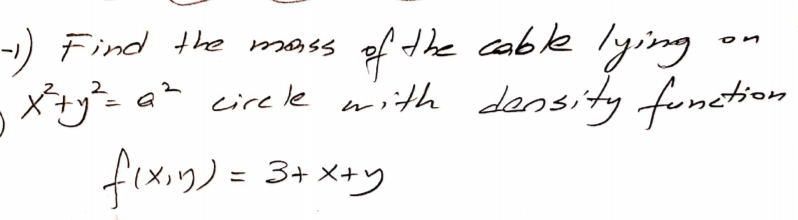 -1) Find the mass of the cable lying on
x²+y²= a² circle with density function
f(x,y) = 3+x+y